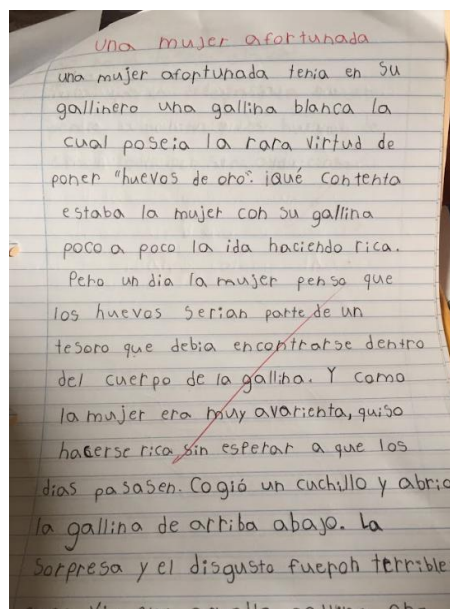 una mujer afortunada
una mujer afoptunada tenia en su
gallinero una gallina blanca la
cual poseia la rara virtud de
poner "huevos de oro". ¡qué contenta
estaba la mujer con su gallina
poco a poco la ida haciendo rica.
Pero un dia la mujer penso que
los huevos serian parte de un
tesoro que debia encontrarse dentro
del cuerpo de la gallina. Y como
la mujer era muy avarienta, quiso
hacerse rica sin esperar a que los
dias pasasen. Cogió un cuchillo y abrio
la gallina de arriba abajo. La
sorpresa y el disgusto fueron terrible